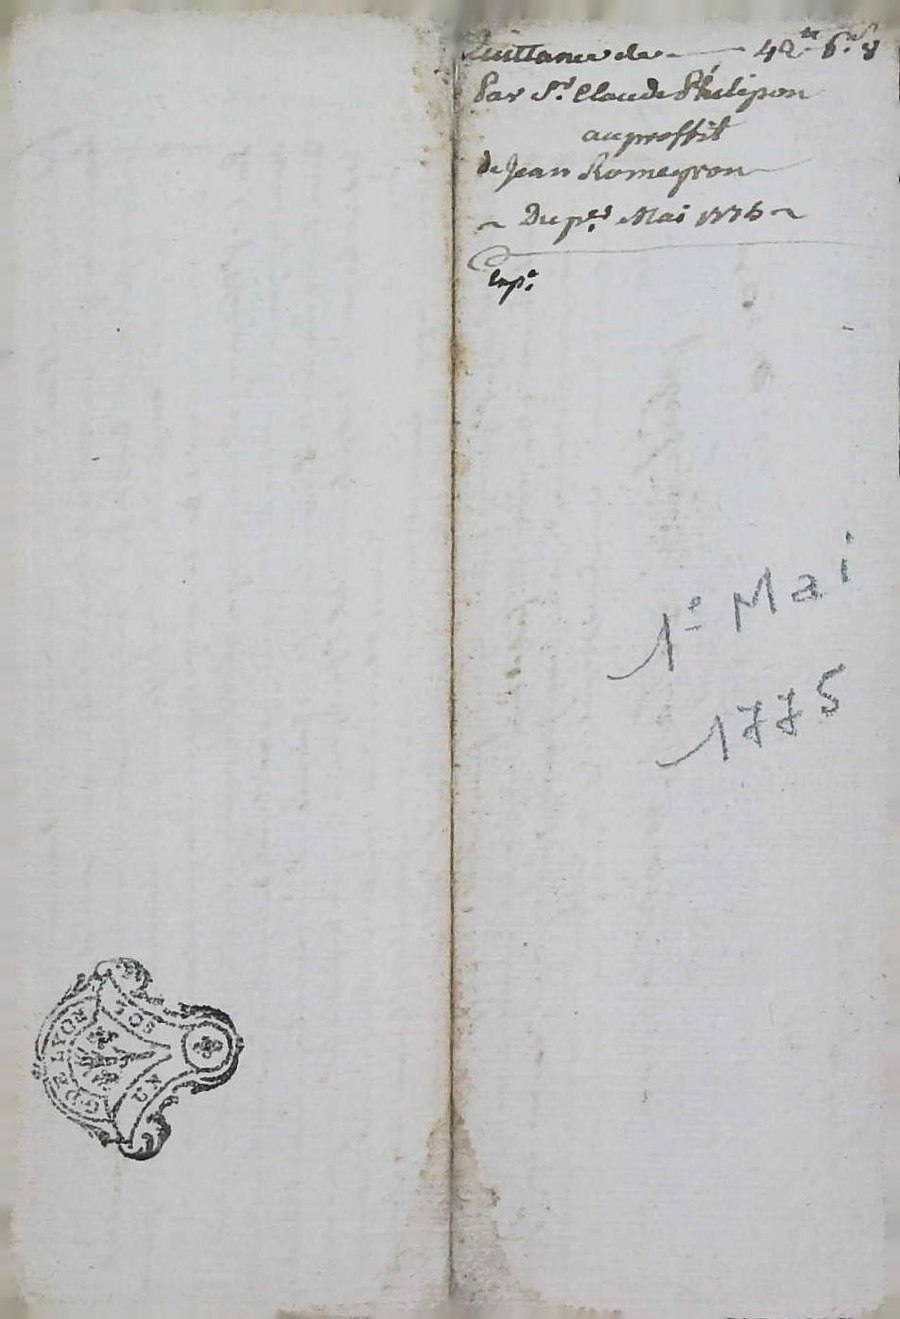 Quittance de — 42# 6s 8
Par Sr. Claude Philipon
au proffit
de Jean Romeyron
~ Du pr. Mai 1775 ~
Exp.
1e Mai
1775
G. DE LYON
UN SOL